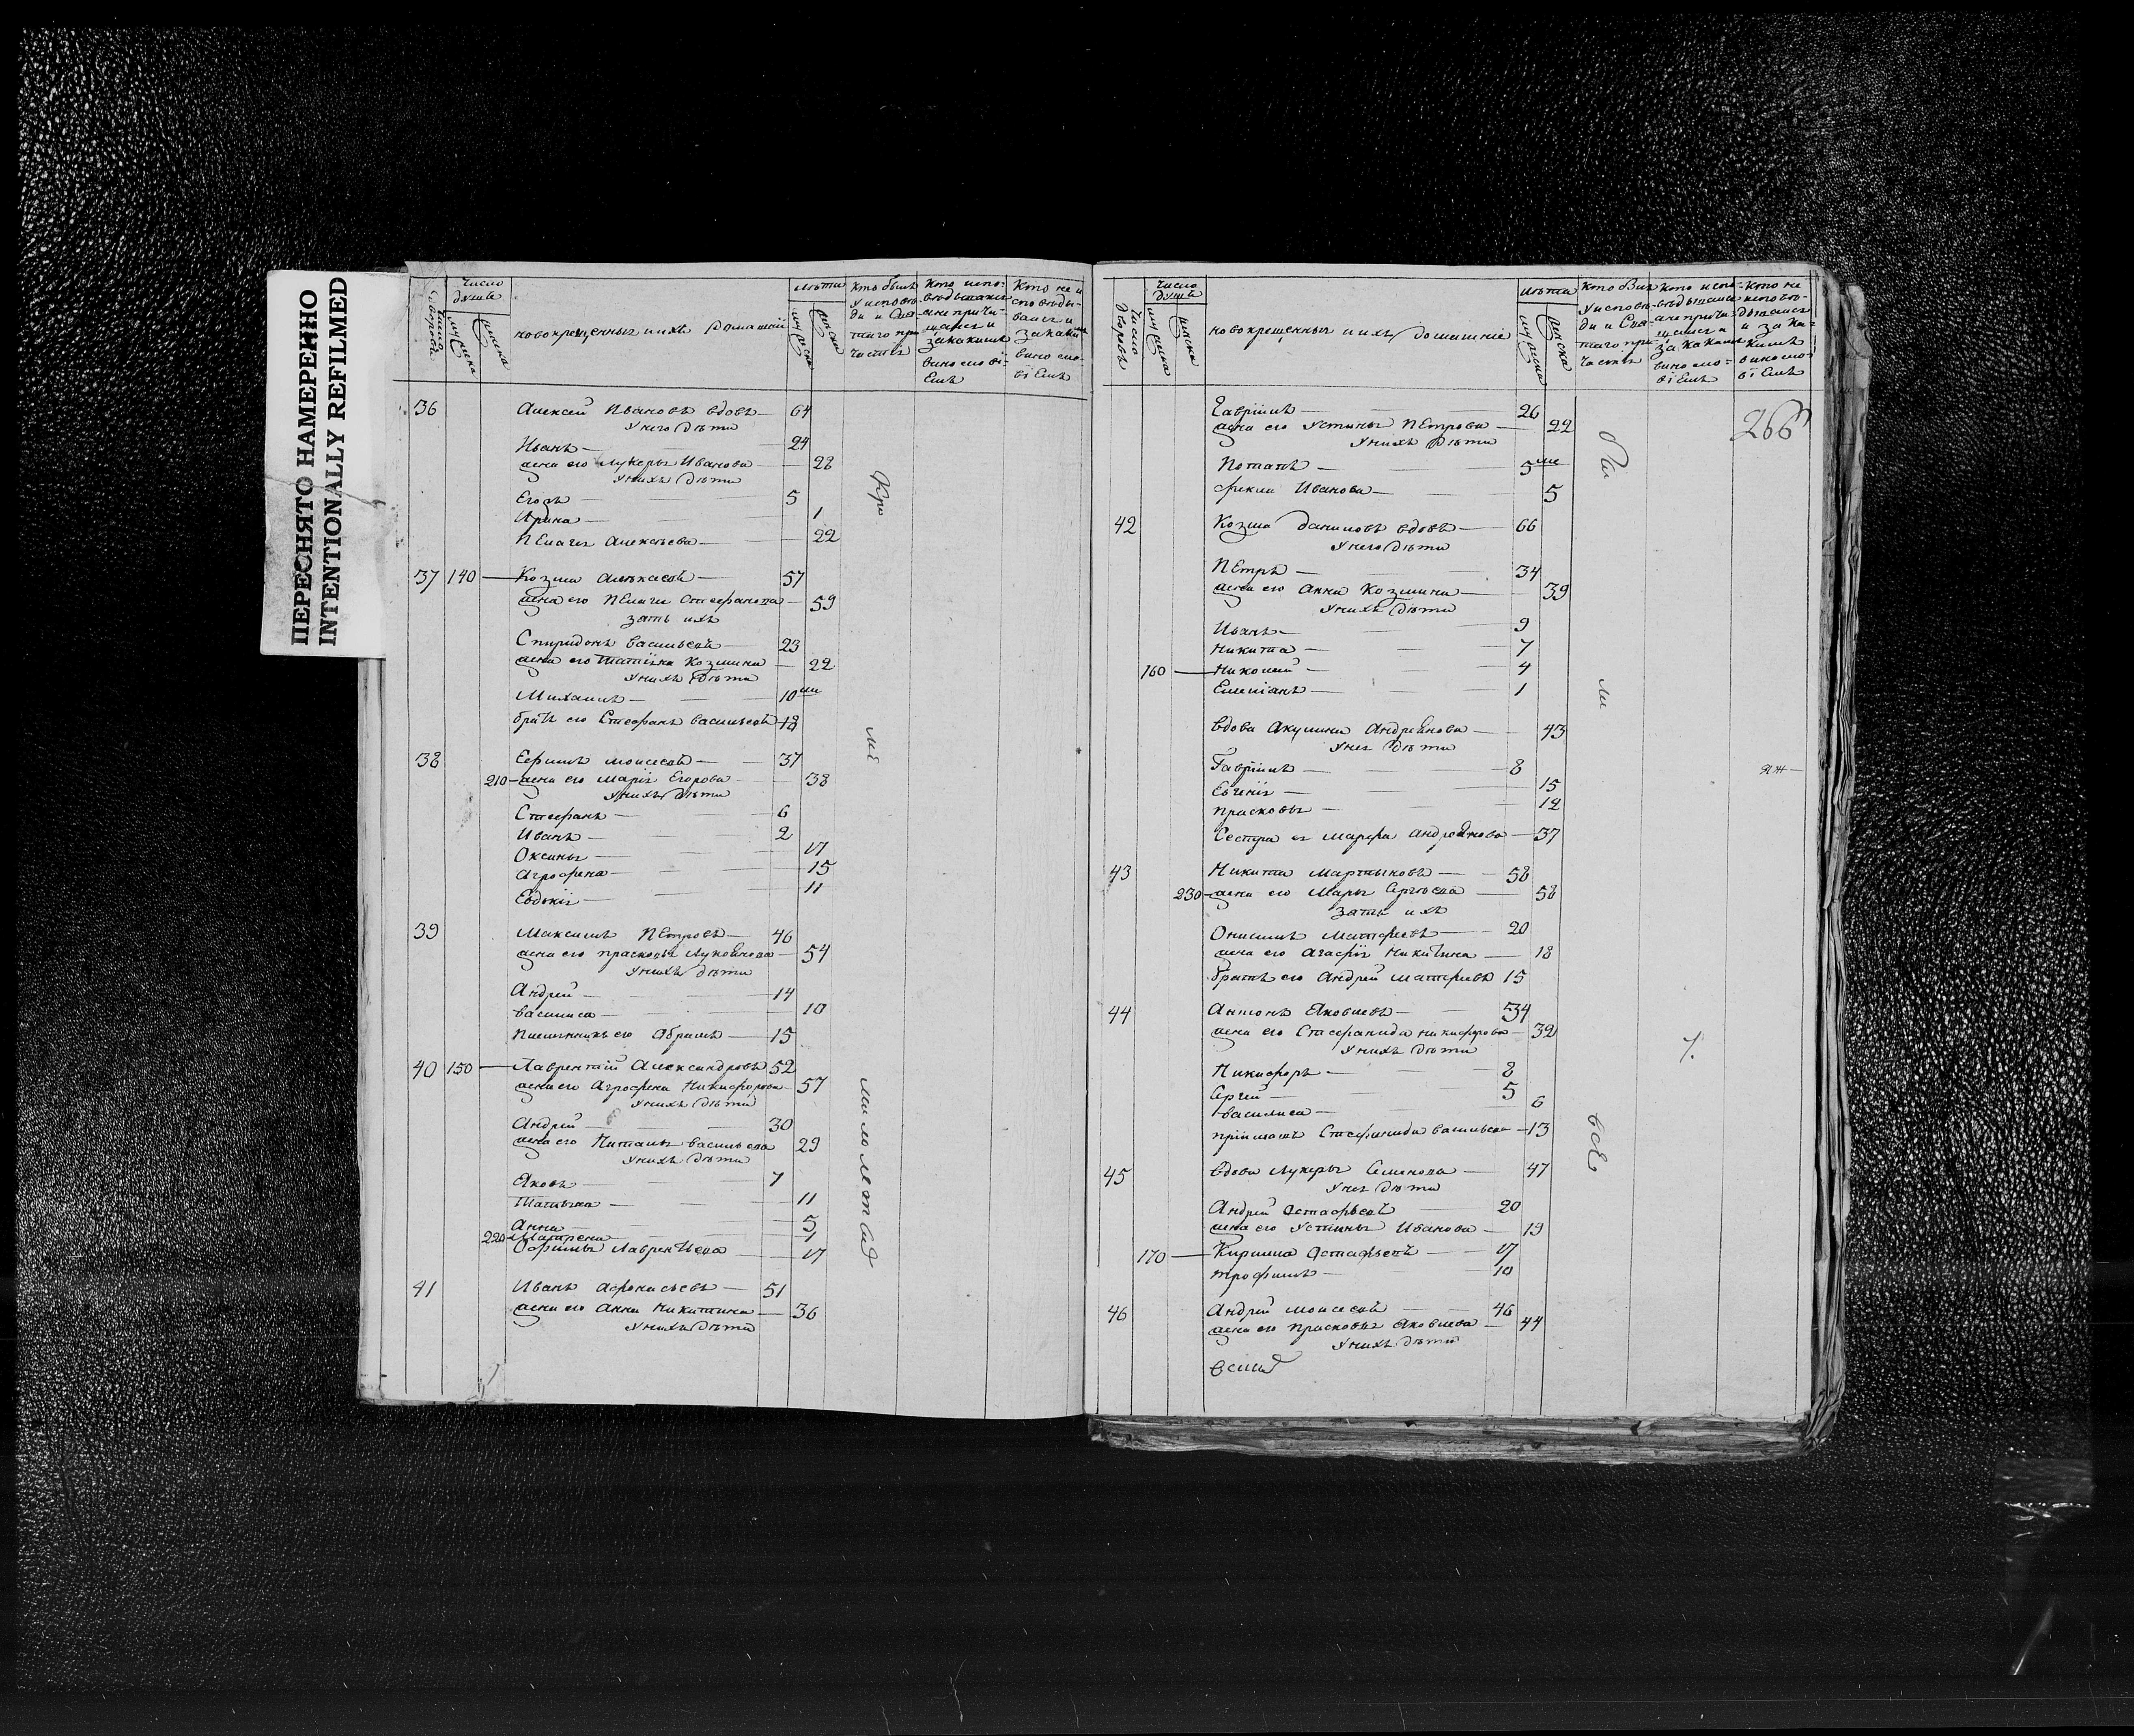 ПЕРЕСНЯТО НАМЕРЕННО
INTENTIONALLY REFILMED
Число дворовъ
Число душъ
мужска
женска
новокрещенныя и ихъ домашнїи
лѣта
мужска
женска
Кто былъ у исповѣди и Святаго причастїя
Кто исповѣдывался а не причащался и за какимъ винословїемъ
Кто не исповѣдывался и за какимъ винословїемъ
36 Алексей Ивановъ вдовъ 64
у него дѣти
Иванъ 24
жена его Лукерья Иванова 28
у нихъ дѣти
Егоръ 5
Ирина 1
Пелагея Алексѣева 22
37 140 Козма
57
жена его Пелагея Стефанова 59
зать ихъ
Спиридонъ Васильевъ 23
жена его Татїяна Козмина 22
у нихъ дѣти
Михаилъ 10
братъ его Стефанъ Васильевъ 18
38 Ефимъ Моисеевъ 37
210 жена его Марїя Егорова 38
у нихъ дѣти
Стефанъ 6
Иванъ 2
Оксинья 17
Агрофена 15
Евдокїя 11
39 Максимъ Петровъ 46
жена его Прасковья Лукоянова 54
у нихъ дѣти
Андрей 14
Василиса 10
племянникъ его Абрамъ 15
40 150 Лаврентїй Александровъ 52
жена его Агрофена Никифорова 57
у нихъ дѣти
Андрей 30
жена его Наталья Васильева 29
у нихъ дѣти
Яковъ 7
Татьяна 11
Анна 5
220 Матрена 1
Софья Лаврентьева 17
41 Иванъ Афонасьевъ 51
жена его Анна Никитина 36
у нихъ дѣти
Число дворовъ
Число душъ
мужска
женска
новокрещенныя и ихъ домашнїе
лѣта
мужска
женска
Кто былъ у исповѣди и Святаго причастїя
Кто исповѣдывался а не причащался и за какимъ винословїемъ
Кто не исповѣдывался и за какимъ винословїемъ
266
Гаврїилъ 26
жена его Устинья Петрова 22
у нихъ дѣти
Потапъ 5
Фекла Иванова 5
42 Козма Даниловъ вдовъ 66
у него дѣти
Петръ 34
жена его Анна Козмина 39
у нихъ дѣти
Иванъ 9
Никита 7
160 Николай 4
Емелїанъ 1
вдова Акулина Андреянова 43
у нея дѣти
Гаврїилъ 8
Евгенїя 15
Прасковья 12
Сестра ея Марфа Андреянова 37
43 Никита Мартыновъ 58
230 жена его Марья Сергѣева 58
зать ихъ
Онисимъ Матфеевъ 20
жена его Агафїя Никитина 18
братъ его Андрей Матфеевъ 15
44 Антонъ Яковлевъ 34
жена его Стефанида Никифорова 32
у нихъ дѣти
Никифоръ 8
Сергей 5
Василиса 6
прїимышъ Стефанида Васильева 13
45 вдова Лукерья Семенова 47
у нея дѣти
Андрей Остафьевъ 20
жена его Устинья Иванова 19
170 Кирилла Остафьевъ 17
Трофимъ 10
46 Андрей Моисеевъ 46
жена его Прасковья Яковлева 44
у нихъ дѣти